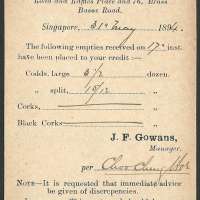 Land and Raffles Place and 76, Brass
Bassa Road.
Singapore, 31st May 1894.
The following empties received on 17th inst.
have been placed to your credit :—
Codds, large 3/2 dozen.
„ split, 19/12 „
Corks,
Black Corks
J. F. Gowans,
Manager.
per
NOTE—It is requested that immediate advice
be given of discrepencies.